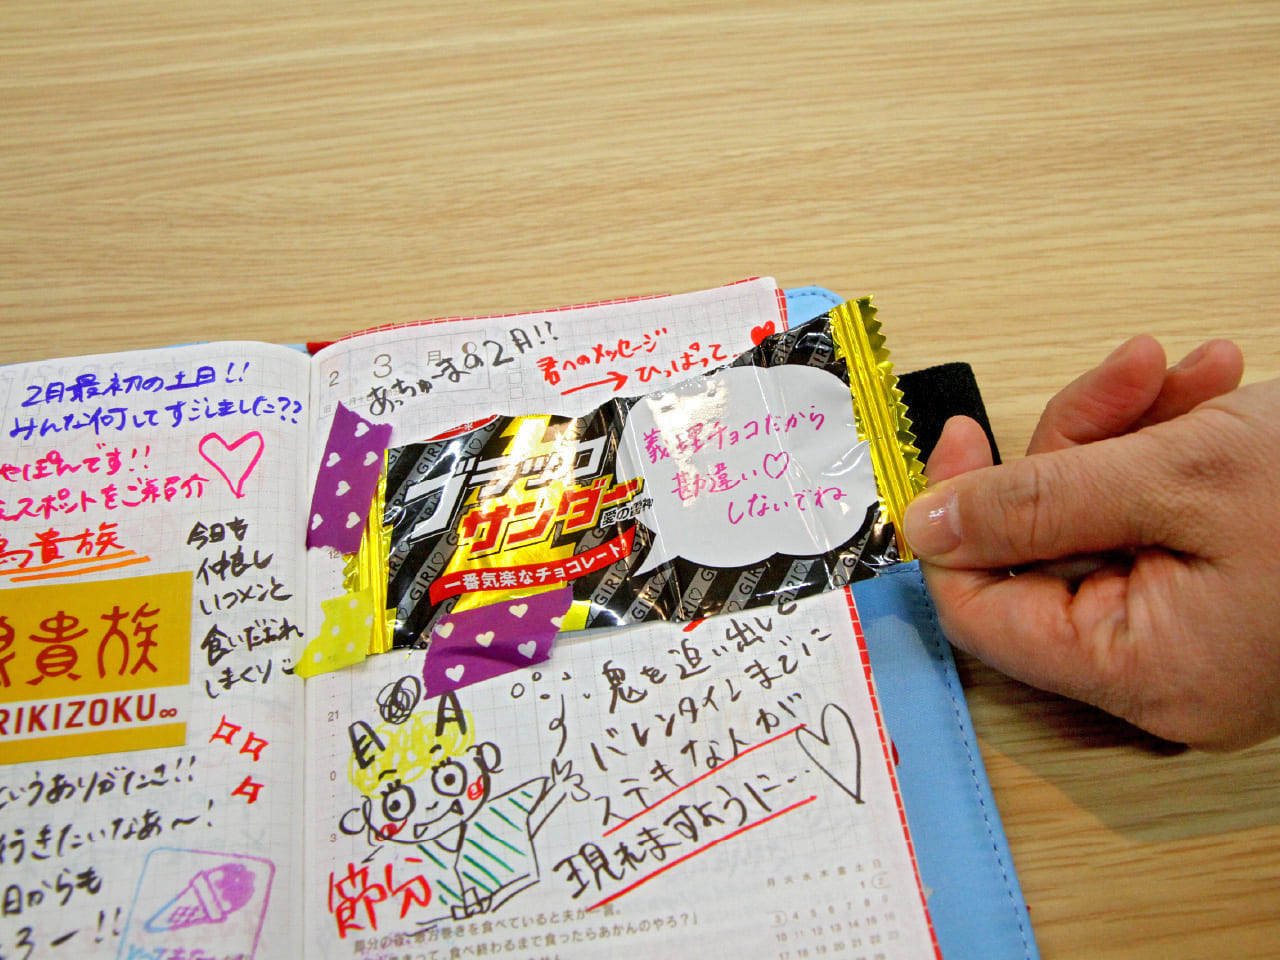 2月最初の土日!!
みんな何してすごしました??
やぽんです!!
スポットをご紹介
鳥貴族
今日も
仲良し
いつメンと
食いだおれ
しまくり
貴族
RIKIZOKU
というありがたさ!!
行きたいなあ〜!
日からも
ろー!!
2
3 月
あっちゅーまの2月!!
君へのメッセージ
→ひっぱって
ブラック
サンダー
愛の雷神
一番気楽なチョコレート!
GIRI
義理チョコだから
勘違い♡
しないでね
12
21
0
3
鬼を追い出しと
バレンタインまでに
ステキな人が
現れますように…
節分
節分の夜、恵方巻きを食べていると夫が一言。
食べ終わるまで食ったらあかんのやろ?」
月 火 水 木 金 土 日
1 2
3 4 5 6 7 8 9
10 11 12 13 14 15 16
17 18 19 20 21 22 23